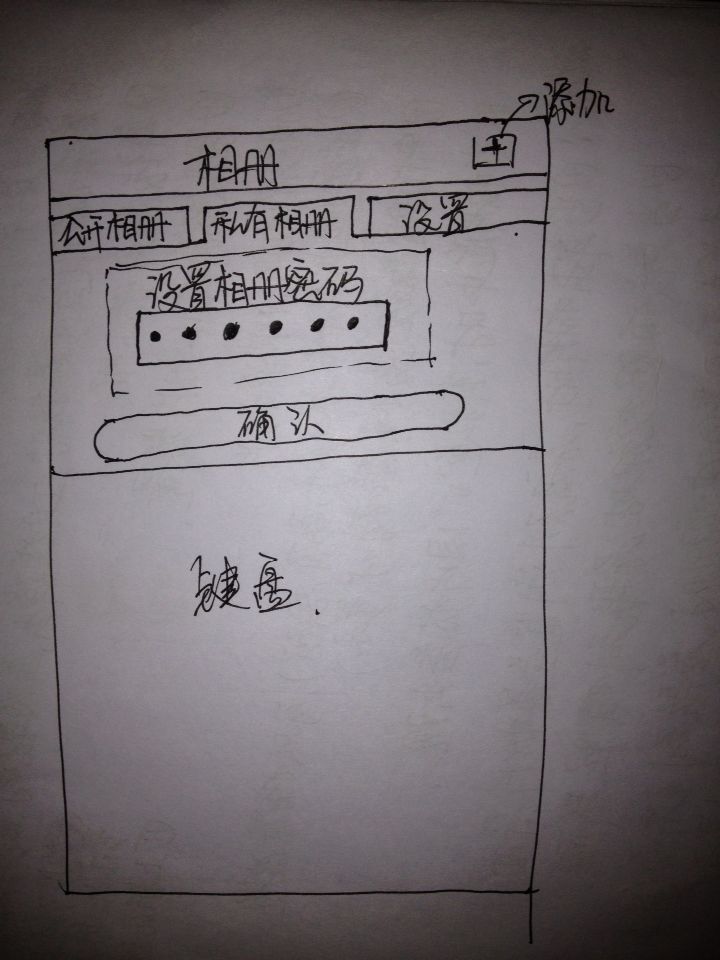 添加
相册 +
公开相册 私有相册 设置
设置相册密码
确认
键盘.